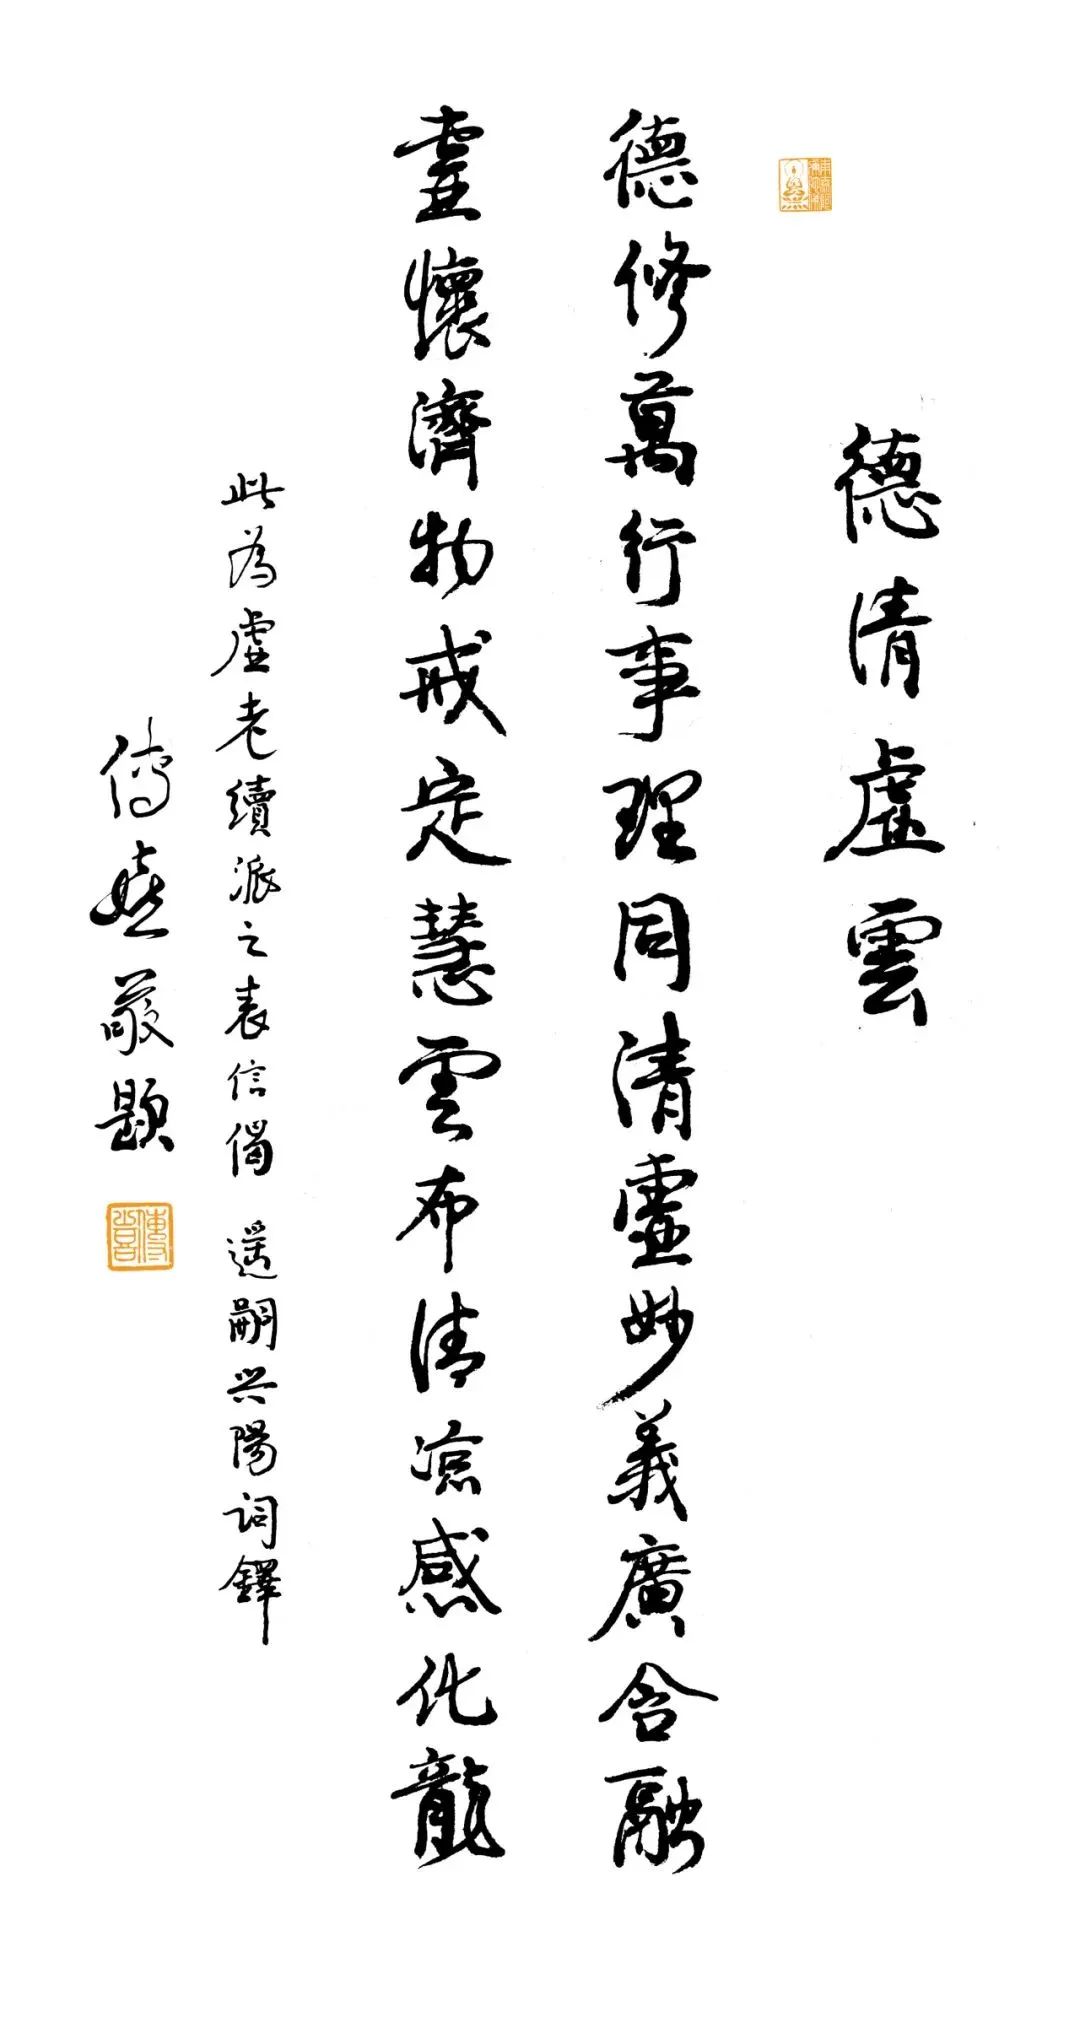 德清虛雲
德修萬行事理同清虛妙義廣含融
虛懷濟物戒定慧雲布清涼感化龍
此為虛老續派之表信偈 遥嗣兴陽词鐸
傳喜敬題
傳喜